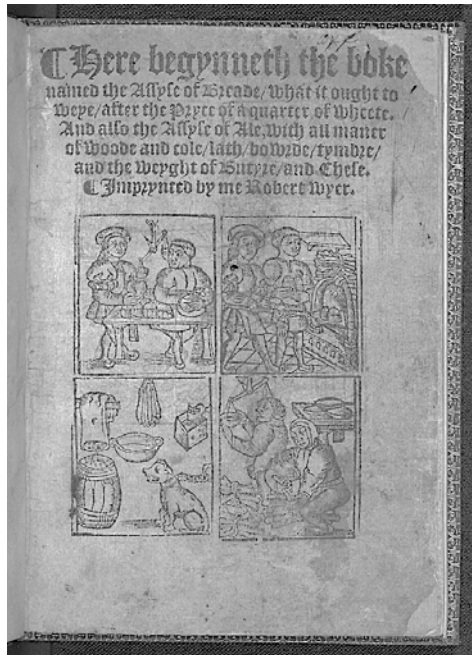 ¶ Here begynneth the boke
named the Assyse of Breade/ what it ought to
weye/ after the Pryce of a quarter of wheete.
And also the Assyse of Ale, with all maner
of woode and cole/ lath/ bowrde/ tymbre/
and the weyght of Butyre/ and Chese.
¶ Imprynted by me Robert Wyer.